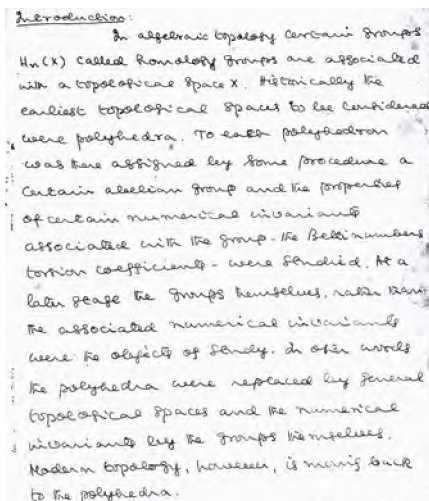 Introduction:
In algebraic topology certain groups
Hn(X) called homology groups are associated
with a topological space X. Historically the
earliest topological spaces to be considered
were polyhedra. To each polyhedron
was there assigned by some procedure a
certain abelian group and the properties
of certain numerical invariants
associated with the group - the Betti numbers
torsion coefficients - were studied. At a
later stage the groups themselves, rather than
the associated numerical invariants
were the objects of study. In other words
the polyhedra were replaced by general
topological spaces and the numerical
invariants by the groups themselves.
Modern topology, however, is moving back
to the polyhedra.